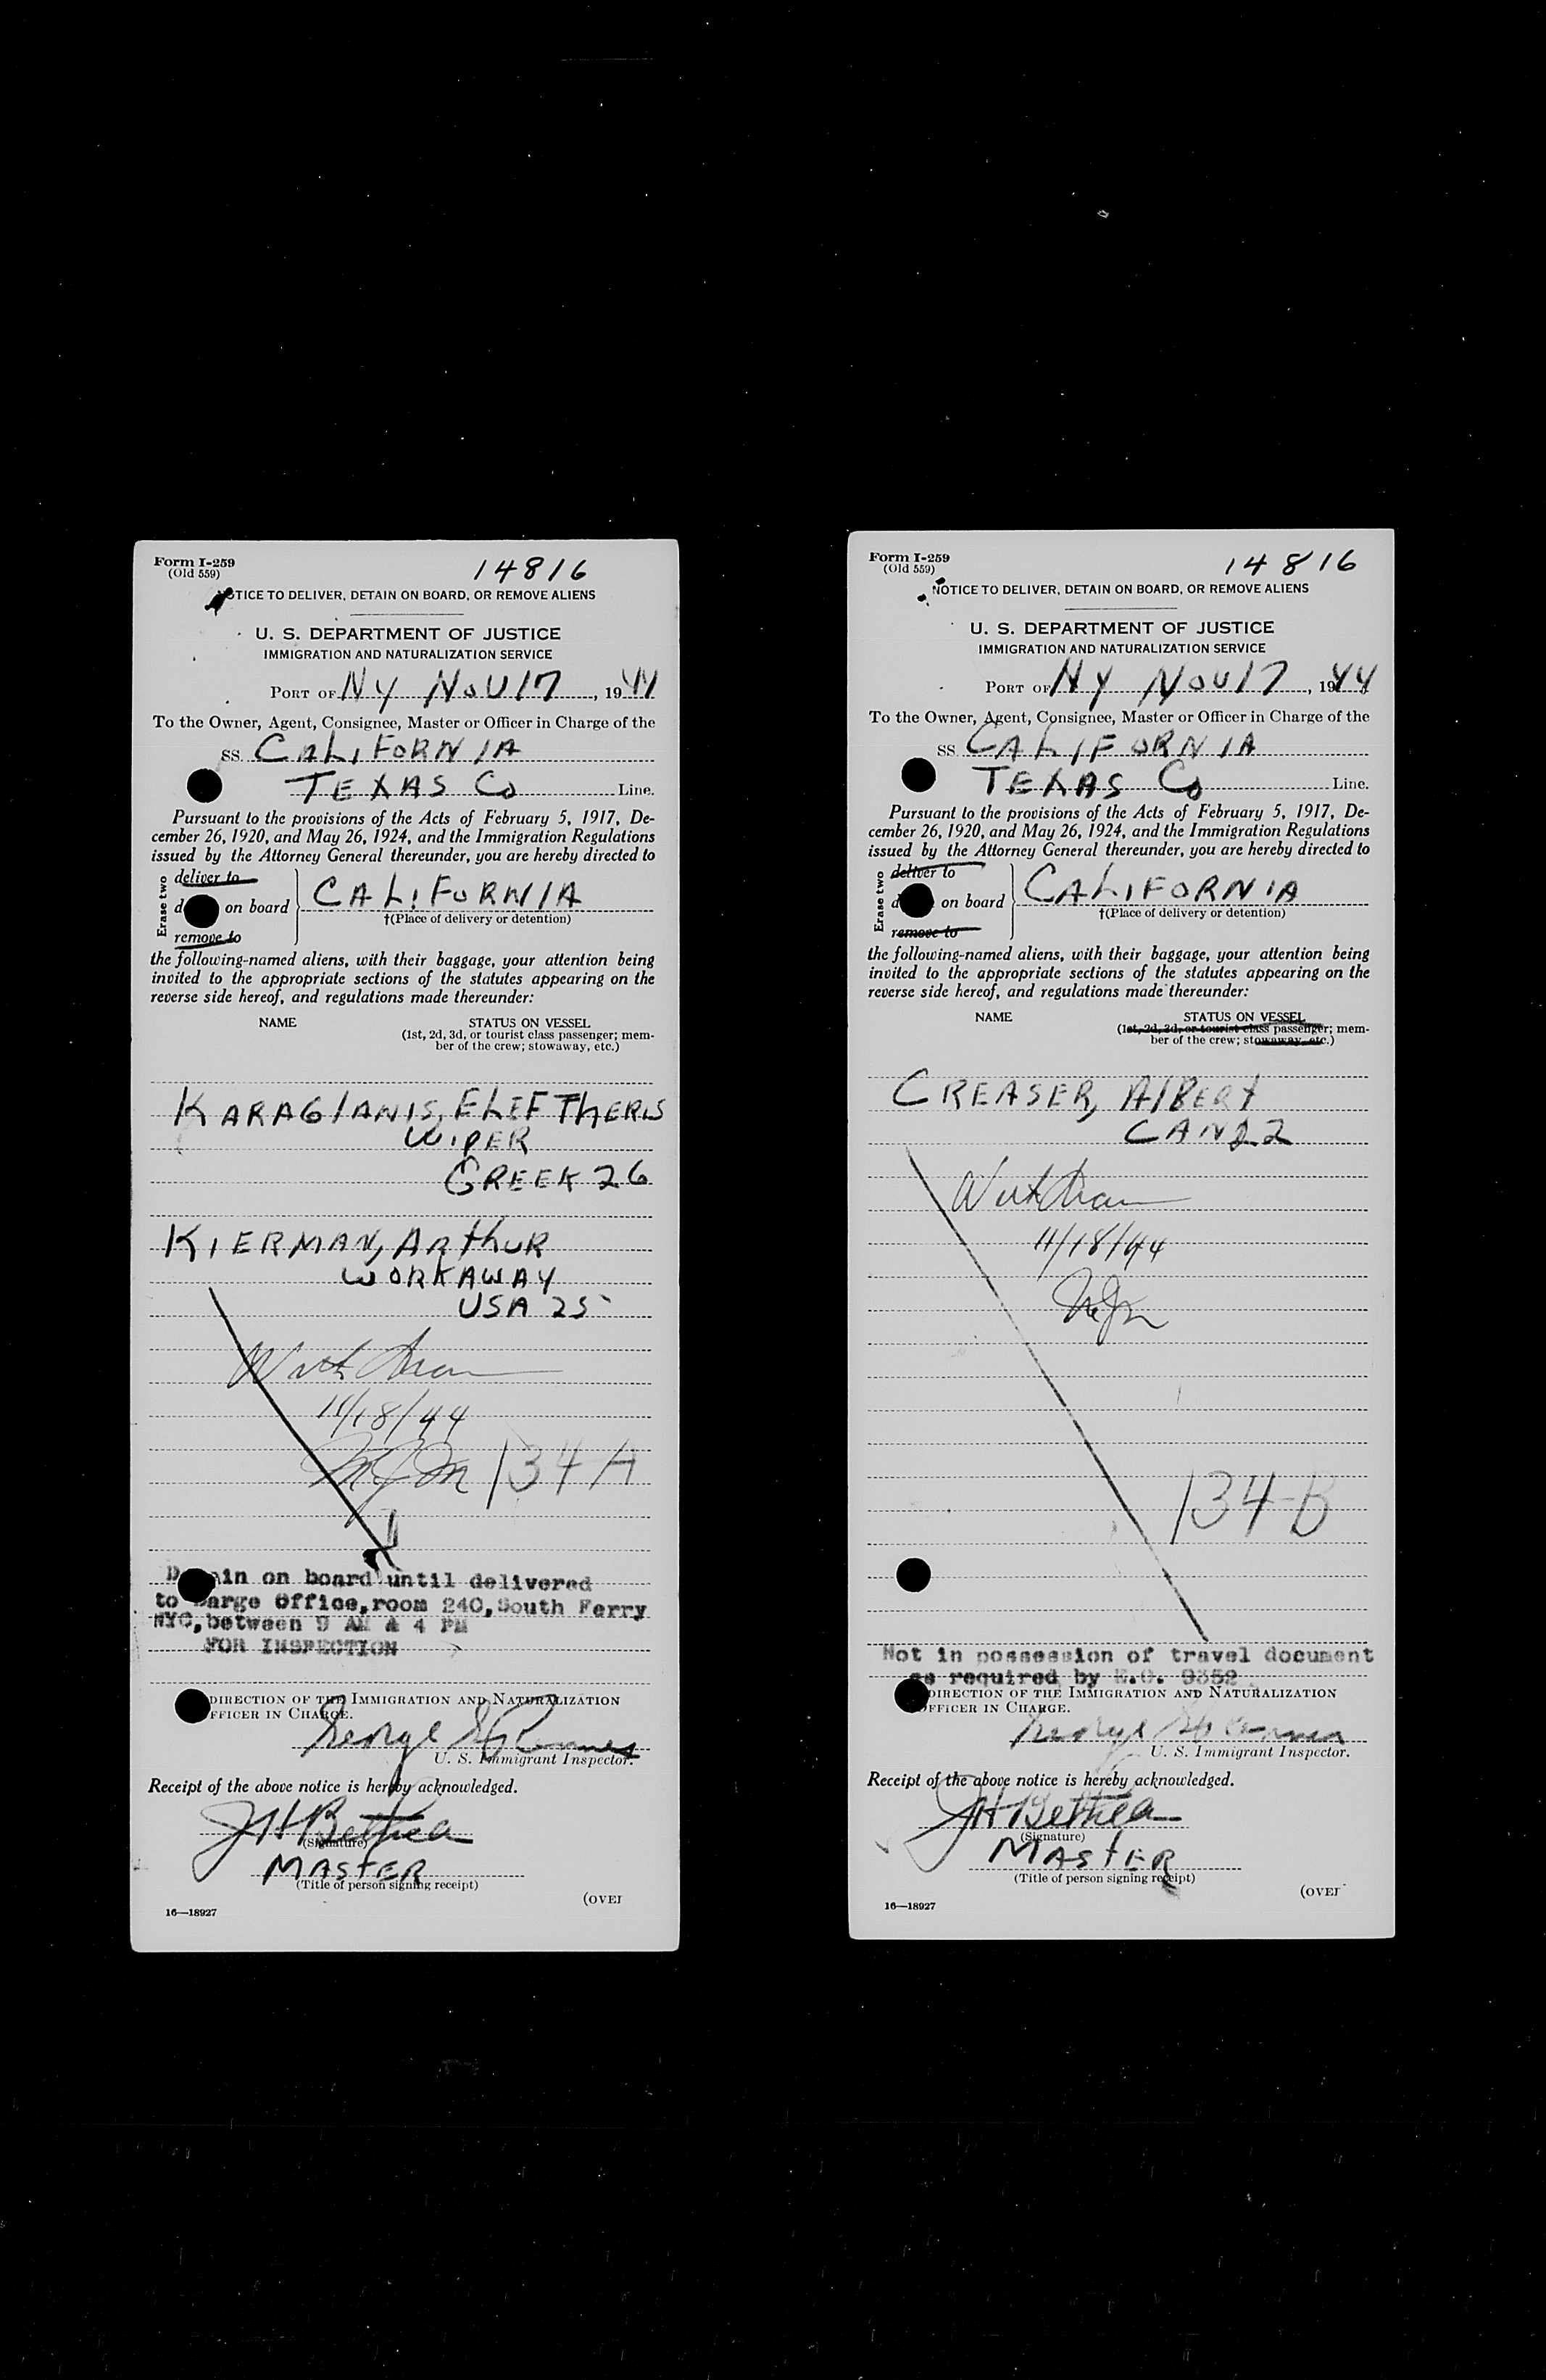 Form I-259
(Old 559)
14816
NOTICE TO DELIVER, DETAIN ON BOARD, OR REMOVE ALIENS
U. S. DEPARTMENT OF JUSTICE
IMMIGRATION AND NATURALIZATION SERVICE
PORT OF NY NOV 17, 1944
To the Owner, Agent, Consignee, Master or Officer in Charge of the
SS. CALIFORNIA
TEXAS Co Line.
Pursuant to the provisions of the Acts of February 5, 1917, De-
cember 26, 1920, and May 26, 1924, and the Immigration Regulations
issued by the Attorney General thereunder, you are hereby directed to
Erase two
deliver to
on board
remove to
CALIFORNIA
†(Place of delivery or detention)
the following-named aliens, with their baggage, your attention being
invited to the appropriate sections of the statutes appearing on the
reverse side hereof, and regulations made thereunder:
NAME STATUS ON VESSEL
(1st, 2d, 3d, or tourist class passenger; mem-
ber of the crew; stowaway, etc.)
KARAGIANIS, ELEFTHERIS
WIPER
GREEK 26
KIERMAN, ARTHUR
WORKAWAY
USA 25
11/18/44
134 A
Detain on board until delivered
to Barge Office, room 240, South Ferry
NYC, between 9 AM & 4 PM
FOR INSPECTION
DIRECTION OF THE IMMIGRATION AND NATURALIZATION
OFFICER IN CHARGE.
George
U. S. Immigrant Inspector.
Receipt of the above notice is hereby acknowledged.
JH Bethea
(Signature)
MASTER
(Title of person signing receipt)
(OVER
16—18927
Form I-259
(Old 559)
14816
NOTICE TO DELIVER, DETAIN ON BOARD, OR REMOVE ALIENS
U. S. DEPARTMENT OF JUSTICE
IMMIGRATION AND NATURALIZATION SERVICE
PORT OF NY NOV 17, 1944
To the Owner, Agent, Consignee, Master or Officer in Charge of the
SS. CALIFORNIA
TEXAS Co Line.
Pursuant to the provisions of the Acts of February 5, 1917, De-
cember 26, 1920, and May 26, 1924, and the Immigration Regulations
issued by the Attorney General thereunder, you are hereby directed to
Erase two
deliver to
on board
remove to
CALIFORNIA
†(Place of delivery or detention)
the following-named aliens, with their baggage, your attention being
invited to the appropriate sections of the statutes appearing on the
reverse side hereof, and regulations made thereunder:
NAME STATUS ON VESSEL
(1st, 2d, 3d, or tourist class passenger; mem-
ber of the crew; stowaway, etc.)
CREASER, AlBERT
CAN 22
11/18/44
134-B
Not in possession of travel document
as required by E.O. 9352
DIRECTION OF THE IMMIGRATION AND NATURALIZATION
OFFICER IN CHARGE.
George
U. S. Immigrant Inspector.
Receipt of the above notice is hereby acknowledged.
JH Bethea
(Signature)
MASTER
(Title of person signing receipt)
(OVER
16—18927